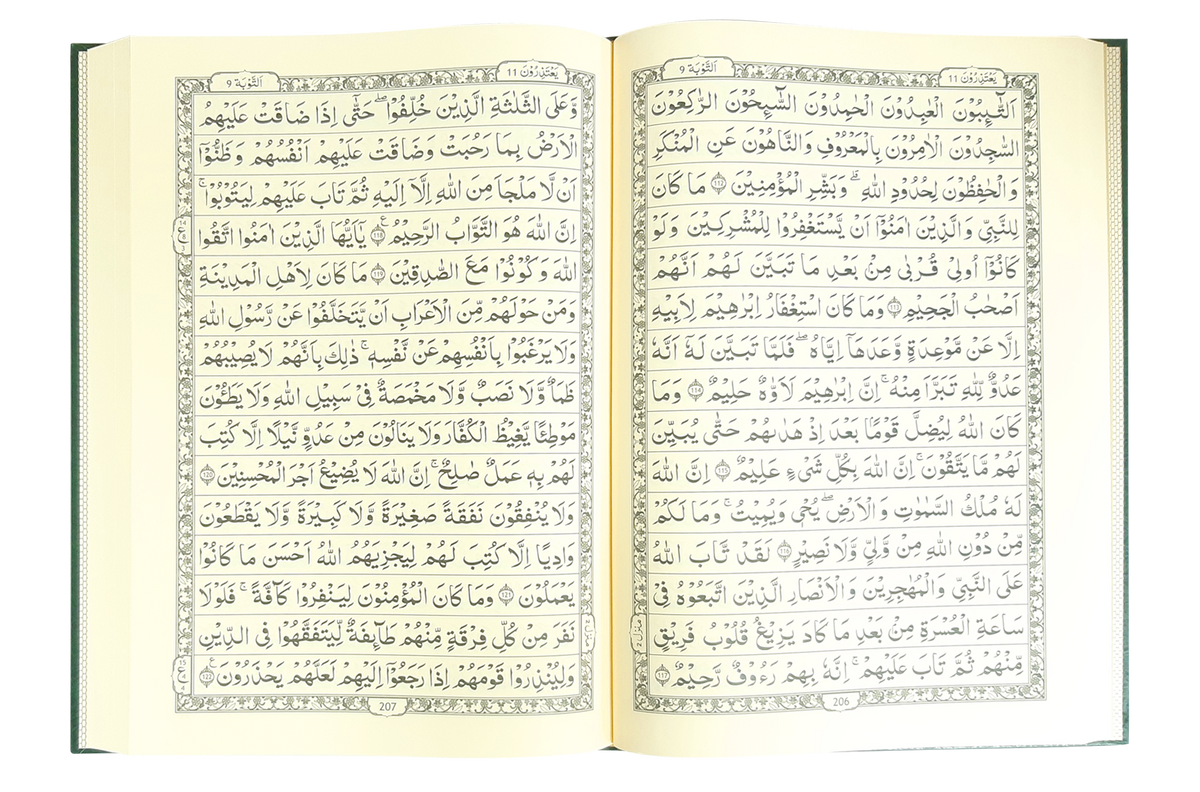 اَلتَّوْبَة 9
يَعْتَذِرُوْنَ 11
اَلتَّآئِبُوْنَ الْعٰبِدُوْنَ الْحٰمِدُوْنَ السَّآئِحُوْنَ الرّٰكِعُوْنَ
السّٰجِدُوْنَ الْاٰمِرُوْنَ بِالْمَعْرُوْفِ وَالنَّاهُوْنَ عَنِ الْمُنْكَرِ
وَالْحٰفِظُوْنَ لِحُدُوْدِ اللّٰهِ ؕ وَبَشِّرِ الْمُؤْمِنِيْنَ ۝112 مَا كَانَ
لِلنَّبِيِّ وَالَّذِيْنَ اٰمَنُوْۤا اَنْ يَّسْتَغْفِرُوْا لِلْمُشْرِكِيْنَ وَلَوْ
كَانُوْۤا اُولِيْ قُرْبٰى مِنْۢ بَعْدِ مَا تَبَيَّنَ لَهُمْ اَنَّهُمْ
اَصْحٰبُ الْجَحِيْمِ ۝113 وَمَا كَانَ اسْتِغْفَارُ اِبْرٰهِيْمَ لِاَبِيْهِ
اِلَّا عَنْ مَّوْعِدَةٍ وَّعَدَهَاۤ اِيَّاهُ ۚ فَلَمَّا تَبَيَّنَ لَهٗۤ اَنَّهٗ
عَدُوٌّ لِّلّٰهِ تَبَرَّاَ مِنْهُ ؕ اِنَّ اِبْرٰهِيْمَ لَاَوَّاهٌ حَلِيْمٌ ۝114 وَمَا
كَانَ اللّٰهُ لِيُضِلَّ قَوْمًۢا بَعْدَ اِذْ هَدٰىهُمْ حَتّٰى يُبَيِّنَ
لَهُمْ مَّا يَتَّقُوْنَ ؕ اِنَّ اللّٰهَ بِكُلِّ شَيْءٍ عَلِيْمٌ ۝115 اِنَّ اللّٰهَ
لَهٗ مُلْكُ السَّمٰوٰتِ وَالْاَرْضِ ؕ يُحْيٖ وَيُمِيْتُ ؕ وَمَا لَكُمْ
مِّنْ دُوْنِ اللّٰهِ مِنْ وَّلِيٍّ وَّلَا نَصِيْرٍ ۝116 لَقَدْ تَّابَ اللّٰهُ
عَلَى النَّبِيِّ وَالْمُهٰجِرِيْنَ وَالْاَنْصَارِ الَّذِيْنَ اتَّبَعُوْهُ فِيْ
سَاعَةِ الْعُسْرَةِ مِنْۢ بَعْدِ مَا كَادَ يَزِيْغُ قُلُوْبُ فَرِيْقٍ
مِّنْهُمْ ثُمَّ تَابَ عَلَيْهِمْ ؕ اِنَّهٗ بِهِمْ رَءُوْفٌ رَّحِيْمٌ ۝117
منزل 2
206
يَعْتَذِرُوْنَ 11
اَلتَّوْبَة 9
وَّعَلَى الثَّلٰثَةِ الَّذِيْنَ خُلِّفُوْا ؕ حَتّٰۤى اِذَا ضَاقَتْ عَلَيْهِمُ
الْاَرْضُ بِمَا رَحُبَتْ وَضَاقَتْ عَلَيْهِمْ اَنْفُسُهُمْ وَظَنُّوْۤا
اَنْ لَّا مَلْجَاَ مِنَ اللّٰهِ اِلَّاۤ اِلَيْهِ ثُمَّ تَابَ عَلَيْهِمْ لِيَتُوْبُوْا ؕ
اِنَّ اللّٰهَ هُوَ التَّوَّابُ الرَّحِيْمُ ۝118 يٰۤاَيُّهَا الَّذِيْنَ اٰمَنُوا اتَّقُوا
اللّٰهَ وَكُوْنُوْا مَعَ الصّٰدِقِيْنَ ۝119 مَا كَانَ لِاَهْلِ الْمَدِيْنَةِ
وَمَنْ حَوْلَهُمْ مِّنَ الْاَعْرَابِ اَنْ يَّتَخَلَّفُوْا عَنْ رَّسُوْلِ اللّٰهِ
وَلَا يَرْغَبُوْا بِاَنْفُسِهِمْ عَنْ نَّفْسِهٖ ؕ ذٰلِكَ بِاَنَّهُمْ لَا يُصِيْبُهُمْ
ظَمَاٌ وَّلَا نَصَبٌ وَّلَا مَخْمَصَةٌ فِيْ سَبِيْلِ اللّٰهِ وَلَا يَطَئُوْنَ
مَوْطِئًا يَّغِيْظُ الْكُفَّارَ وَلَا يَنَالُوْنَ مِنْ عَدُوٍّ نَّيْلًا اِلَّا كُتِبَ
لَهُمْ بِهٖ عَمَلٌ صَالِحٌ ؕ اِنَّ اللّٰهَ لَا يُضِيْعُ اَجْرَ الْمُحْسِنِيْنَ ۝120
وَلَا يُنْفِقُوْنَ نَفَقَةً صَغِيْرَةً وَّلَا كَبِيْرَةً وَّلَا يَقْطَعُوْنَ
وَادِيًا اِلَّا كُتِبَ لَهُمْ لِيَجْزِيَهُمُ اللّٰهُ اَحْسَنَ مَا كَانُوْا
يَعْمَلُوْنَ ۝121 وَمَا كَانَ الْمُؤْمِنُوْنَ لِيَنْفِرُوْا كَآفَّةً ؕ فَلَوْلَا
نَفَرَ مِنْ كُلِّ فِرْقَةٍ مِّنْهُمْ طَآئِفَةٌ لِّيَتَفَقَّهُوْا فِي الدِّيْنِ
وَلِيُنْذِرُوْا قَوْمَهُمْ اِذَا رَجَعُوْۤا اِلَيْهِمْ لَعَلَّهُمْ يَحْذَرُوْنَ ۝122
207